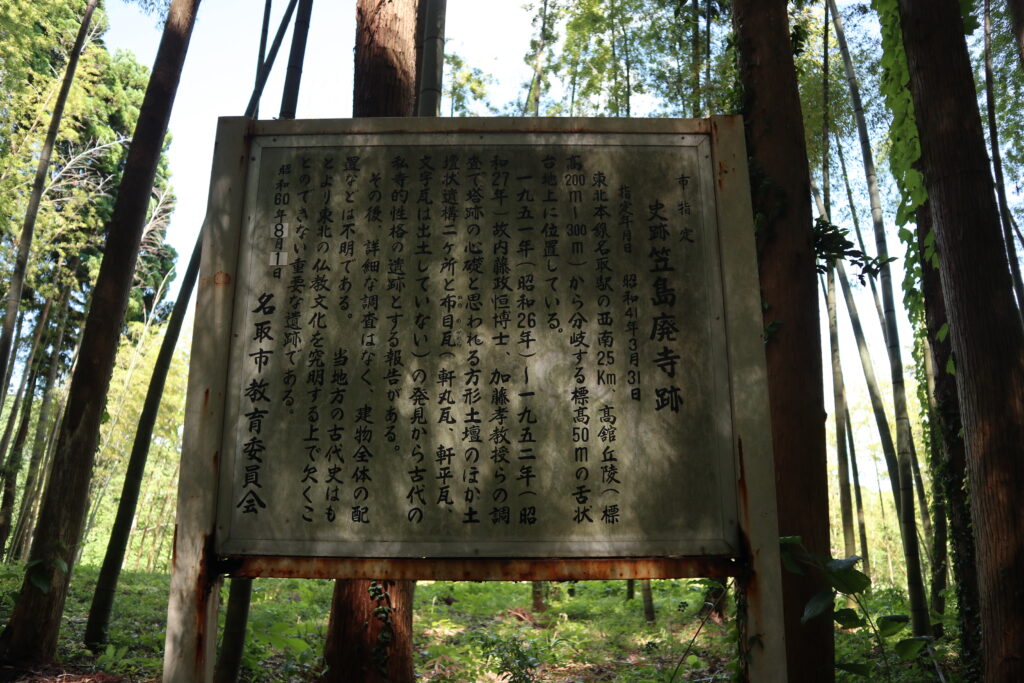 市指定
史跡笠島廃寺跡
指定年月日 昭和41年3月31日
東北本線名取駅の西南25Km、高舘丘陵(標
高200m〜300m)から分岐する標高50mの舌状
台地上に位置している。
一九五一年(昭和26年)〜一九五二年(昭
和27年)故内藤政恒博士、加藤孝教授らの調
査で塔跡の心礎と思われる方形土壇のほか土
壇状遺構二ヶ所と布目瓦(軒丸瓦、軒平瓦、
文字瓦は出土していない)の発見から古代の
私寺的性格の遺跡とする報告がある。
その後、詳細な調査はなく、建物全体の配
置などは不明である。 当地方の古代史はも
とより東北の仏教文化を究明する上で欠くこ
とのできない重要な遺跡である。
昭和60年8月1日
名取市教育委員会